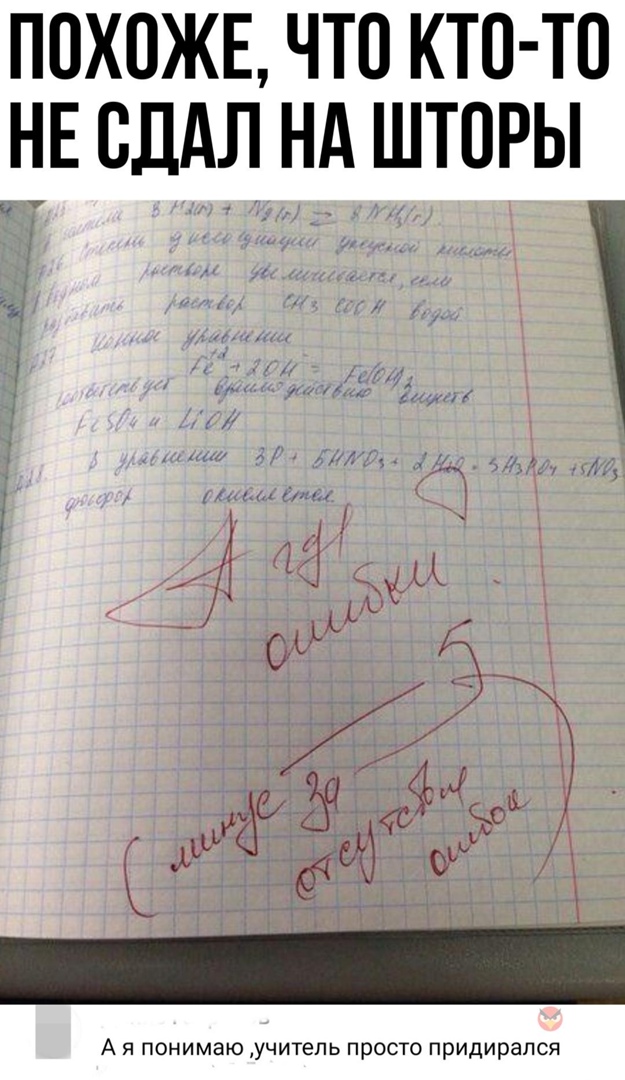 ПОХОЖЕ, ЧТО КТО-ТО
НЕ СДАЛ НА ШТОРЫ
3 H2(г) + N2(г) ⇄ 2 NH3(г).
Степень диссоциации уксусной кислоты
в водном растворе увеличивается, если
разбавить раствор CH3 COOH водой
A27 Ионное уравнение
Fe+2 + 2OH- = Fe(OH)2
соответствует взаимодействию веществ
FeSO4 и LiOH
A28. В уравнении 3P + 5HNO3 + 2H2O = 3H3PO4 + 5NO
фосфор окисляется.
А где
ошибки
5
(минус за
отсутствие
ошибок)
А я понимаю ,учитель просто придирался